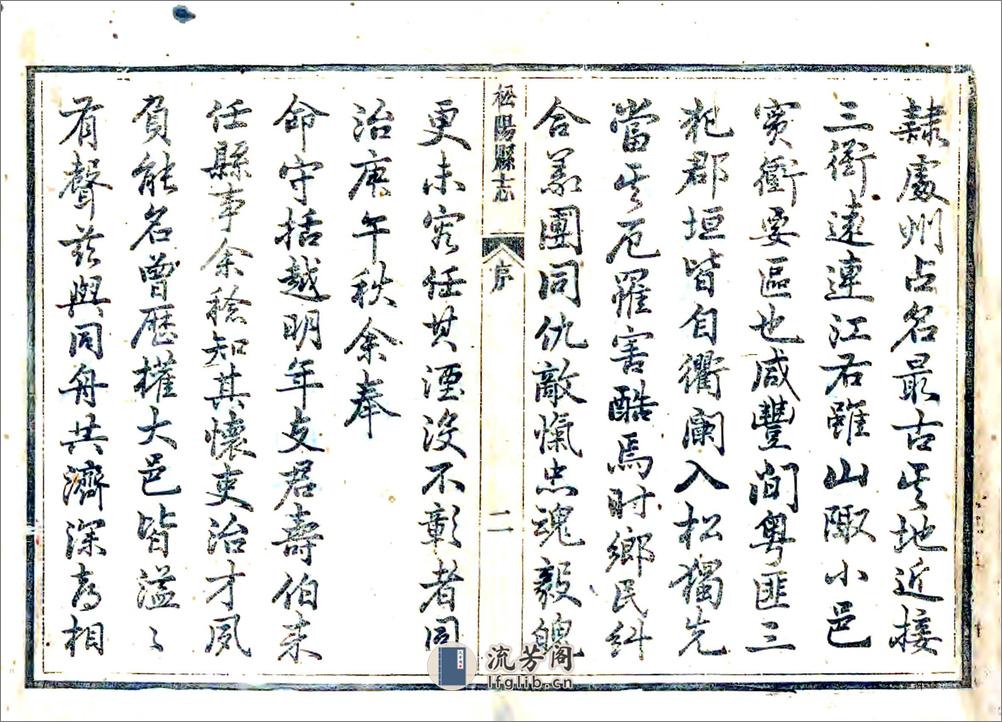 隸處州占名最古其地近接
三衢遠連江右雖山陬小邑
實衝要區也咸豐間粵匪三
犯郡垣皆自衢闌入松獨先
當其厄罹害酷焉时鄉民糾
合義團同仇敵愾忠魂毅魄
松陽縣志
序
二
更未容任其湮沒不彰者同
治庚午秋余奉
命守括越明年支君壽伯來
任縣事余稔知其懷吏治才夙
負能名曾歷權大邑皆溢溢
有聲茲與同舟共濟深為相
流芳阁
lfglib.cn